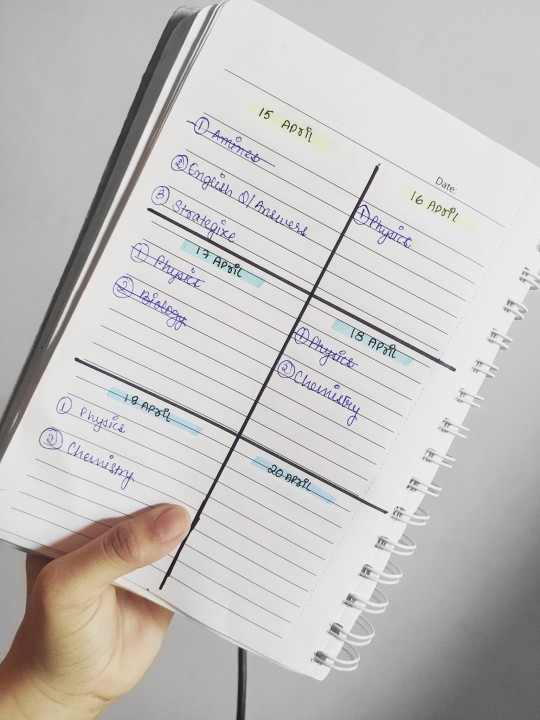 15 April
① Amines
② English Q/Answers
③ Strategize
Date:
16 April
① Physics
17 April
① Physics
② Biology
18 April
① Physics
② Chemistry
19 April
① Physics
② Chemistry
20 April